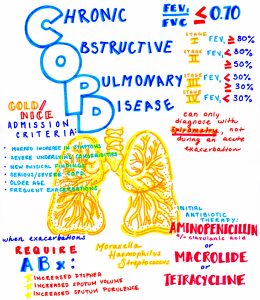 CHRONIC
OBSTRUCTIVE
PULMONARY
DISEASE
FEV₁/FVC ≤ 0.70
STAGE I FEV₁ ≥ 80%
STAGE II FEV₁ ≥ 50%
STAGE III FEV₁ ≥ 30%
STAGE IV FEV₁ < 30%
can only
diagnose with
spirometry, not
during an acute
exacerbation
GOLD/
NICE
ADMISSION
CRITERIA:
• MARKED INCREASE IN SYMPTOMS
• SEVERE UNDERLYING COMORBIDITIES
• NEW PHYSICAL FINDINGS
• SERIOUS/SEVERE COPD
• OLDER AGE
• FREQUENT EXACERBATIONS
when exacerbations
REQUIRE
ABx:
INCREASED DYSPNEA
INCREASED SPUTUM VOLUME
INCREASED SPUTUM PURULENCE
Moraxella
Haemophilus
Streptococcus
INITIAL
ANTIBIOTIC
THERAPY:
AMINOPENICILLIN
+/- clavulanic acid
or
MACROLIDE
or
TETRACYCLINE